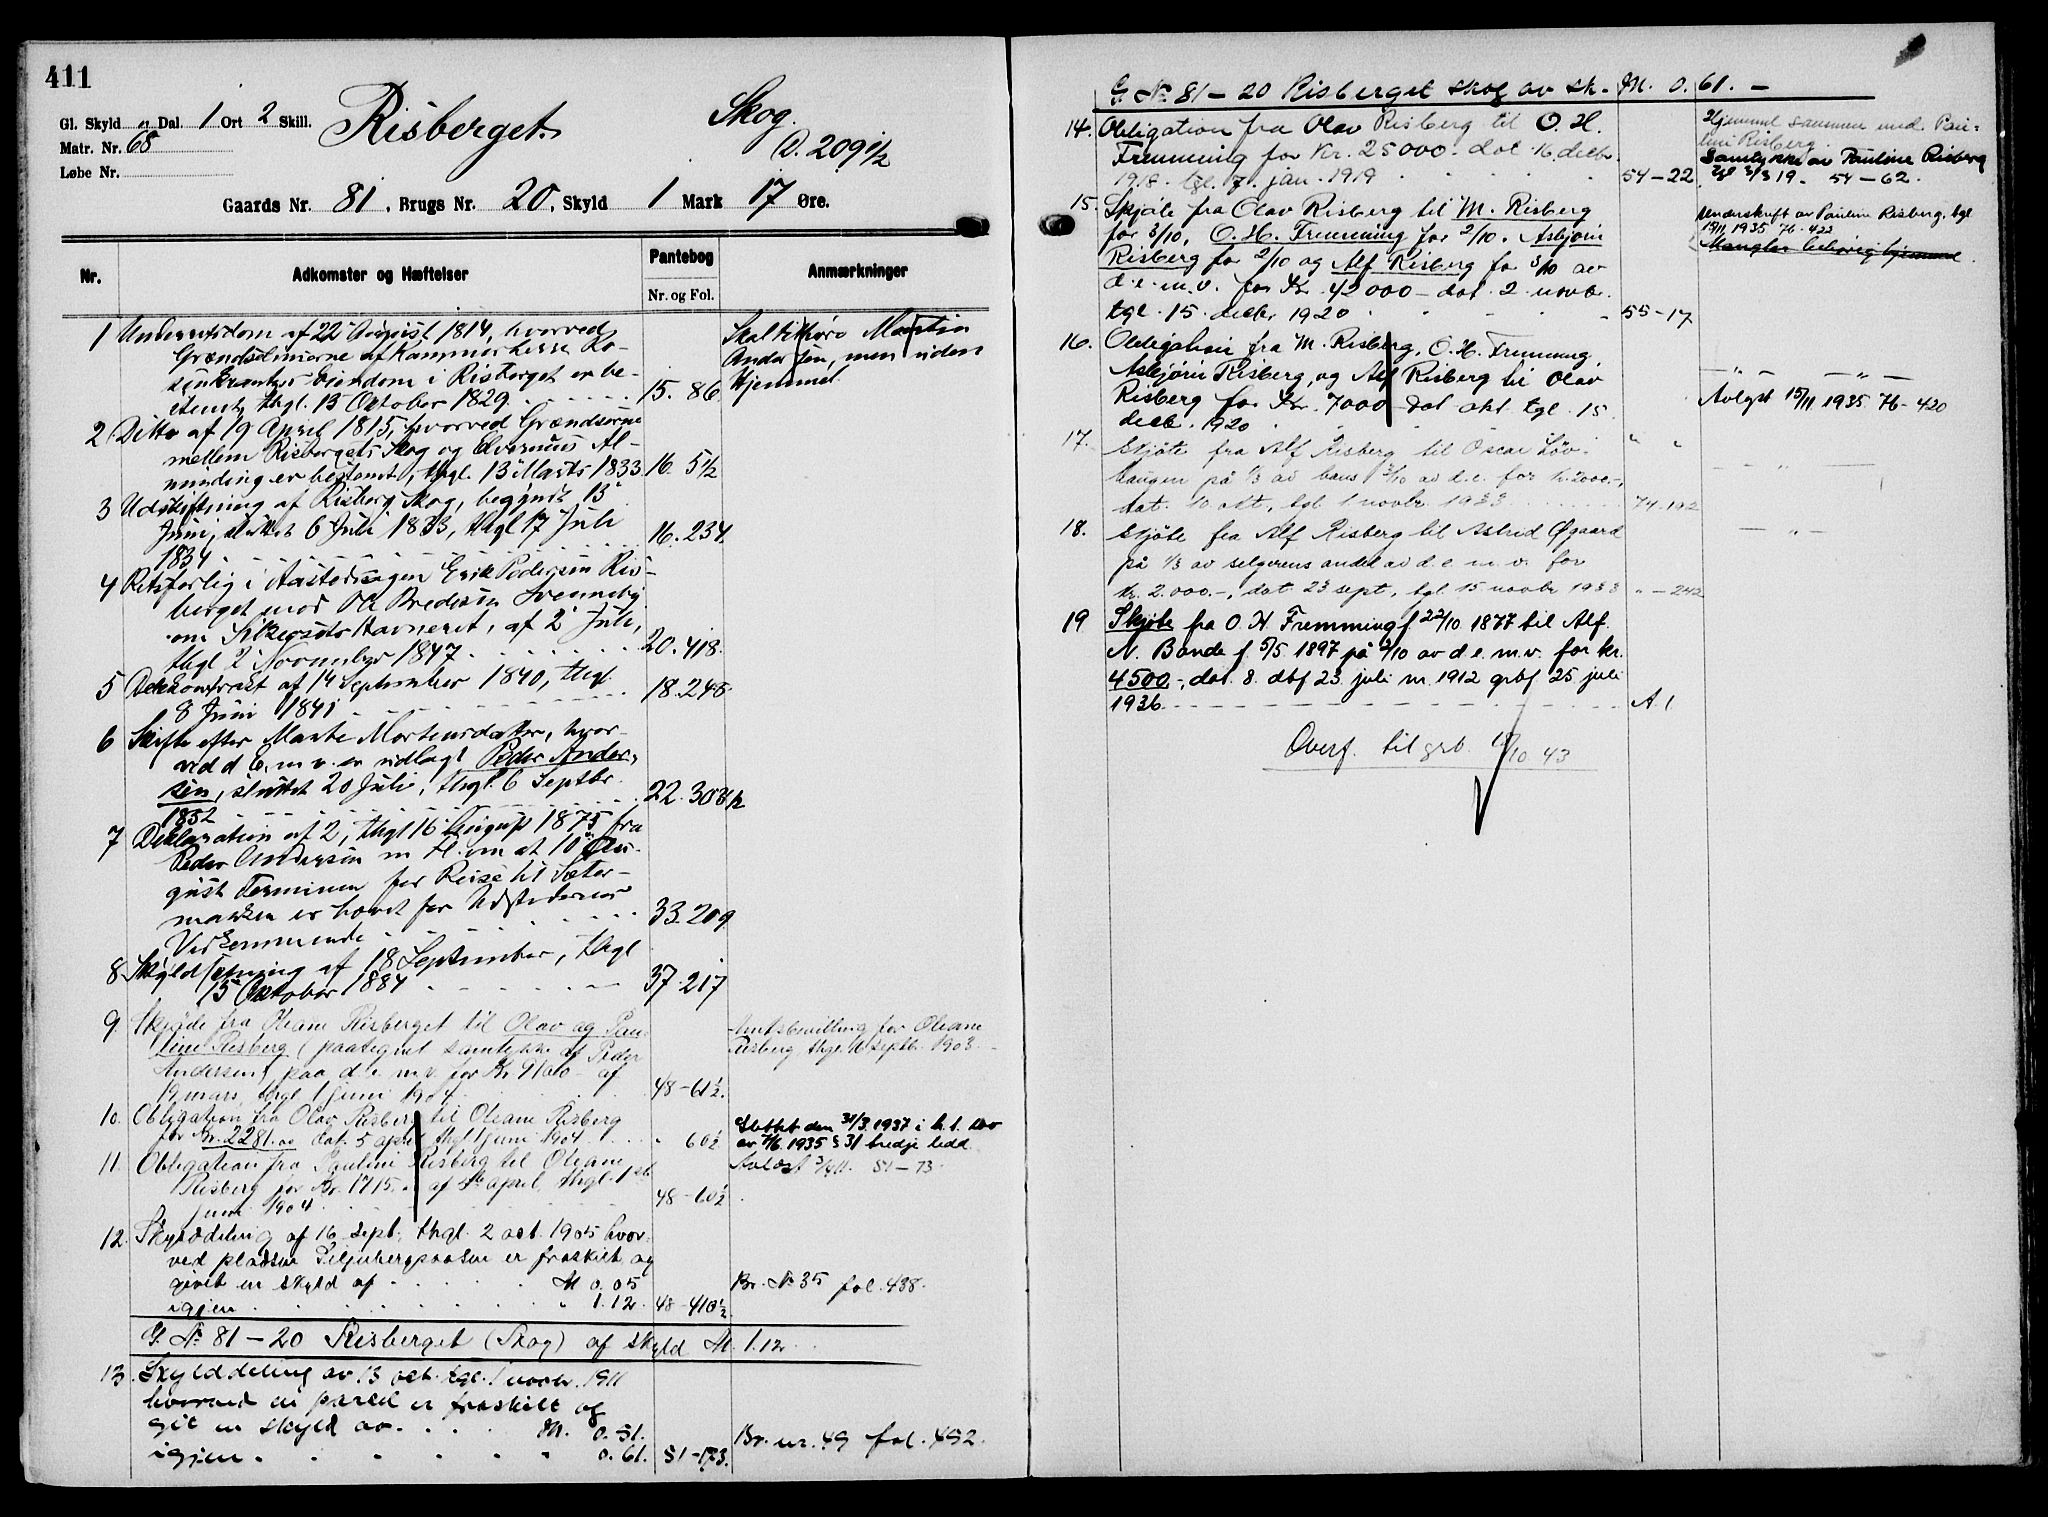 411
Gl. Skyld " Dal. 1 Ort 2 Skill.
Matr. Nr. 68
Løbe Nr.
Risberget. Skog.
(D. 209 1/2
Gaards Nr. 81, Brugs Nr. 20, Skyld 1 Mark 17 Øre.
Nr. Adkomster og Hæftelser Pantebog Anmærkninger
Nr. og Fol.
1 Underretsdom af 22 August 1814, hvorved
Grændselinierne af Kammerherre Ro-
senkrantzes Eiendom i Risberget er be-
stemt, thgl. 15 Oktober 1829. 15. 86.
Skal tilhøre Martin
Andersen, men uden
Hjemmel.
2 Ditto af 19 April 1815, hvorved Grændserne
mellem Risbergets Skog og Elverums Al-
minding er bestemt, thgl. 13 Marts 1833 16. 5 1/2
3 Udskiftning af Risberg Skog, begyndt 13
Juni, sluttet 6 Juli 1833, thgl 17 Juli
1834 16. 234.
4 Retsforlig i Aastedssagen Erik Pedersen Ris-
berget mod Ole Bredesen Svenneby
om Havneret, af 2 Juli,
thgl 2 November 1847. 20. 418.
5 Kontrakt af 14 September 1840, thgl
8 Juni 1841 18. 246.
6 Skifte efter Marte Mortensdatter, hvor-
ved d. E. m. v. er udlagt Peder Ander-
sen, sluttet 20 Juli, thgl. 6 Septbr.
1852 22. 308 1/2
7 Deklaration af 2, thgl 16 August 1875 fra
Peder Andersen m Fl. om at 10 Au-
gust Terminen for Reise til Sæter-
marken er hævet for Udstedernes
Vedkommende 33. 209
8 Skyldsetning af 18 September, thgl
15 Oktober 1884 37. 217
9. Skjøde fra Oleane Risberget til Olav og Pau-
line Risberg (paategnet samtykke af Peder
Andersen) paa d. e. m. v. for Kr. af
19 mars, thgl 1 juni 1904. 48-61 1/2.
Amtsbevilling for Oleane
Risberg thgl. 16 septbr. 1903.
10. Obligation fra Olav Risberg til Oleane Risberg
for Kr. 2281.00 dat. 5 april thgl 1 juni 1904. " 60 1/2
Slettet den 31/3.1937 i h. t. lov
av 7/6. 1935 § 31 tredje ledd.
11. Obligation fra Pauline Risberg til Oleane
Risberg for Kr. 1715. af 5te april, thgl. 1ste
juni 1904. 48-60 1/2
Avlæst 51-73.
12. Skylddeling af 16 sept. thgl. 2 oct. 1905 hvor-
ved pladsen er fraskilt og
givet en skyld af M 0.05
igjen " 1.12. 48-410 1/2
Br. № 35 fol. 488.
G. № 81-20 Risberget (Skog) af skyld M. 1.12.
13. Skylddeling av 13 oct. tgl. 1 novbr. 1911
hvorved en parcel er fraskilt og
git en skyld av M. 0.51.
igjen " 0.61. 51-173.
Br. nr. 49 fol. 492.
G. № 81-20 Risberget skog av sk. M. 0.61.-
14. Obligation fra Olav Risberg til O. H.
Fremming for Kr. 25000.- dat. 16 decbr.
1918. tgl. 7. jan. 1919 54-22
Hjemmel sammen med Pau-
line Risberg.
Samtykke av Pauline Risberg
tgl 3/3 19. 54-62.
15. Skjøte fra Olav Risberg til M. Risberg
for 3/10, O. H. Fremming for 2/10, Asbjørn
Risberg for 2/10 og Alf Risberg for 3/10 av
d. e. m. v. for Kr. 42000- dat. 2 novbr.
tgl. 15. decbr 1920 55-17
Underskrift av Pauline Risberg, tgl
15/11 1935 76-422
Mangler behørig hjemmel.
16. Obligation fra M. Risberg, O. H. Fremming,
Asbjørn Risberg, og Alf Risberg til Olav
Risberg for Kr. 7000- dat okt. tgl. 15
decb. 1920 " "
— " — — " —
Avlyst 15/11 1935. 76-420
17. Skjøte fra Alf Risberg til Oscar Løv-
haugen på 1/3 av hans 3/10 av d. e. for kr. 2000.-,
dat. 10 okt, tgl 1 novbr. 1933 74-192
— " —
18. Skjøte fra Alf Risberg til Astrid Øgaard
på 1/3 av selgerens andel av d. e. m. v. for
kr. 2.000.-, dat 23 sept, tgl 15 novbr 1933 " - 242
— " —
19 Skjøte fra O. H. Fremming f 22/10 1877 til Alf
N. Bande f. 5/5 1897 på 2/10 av d. e. m. v. for kr.
4500.-, dat. 8. dbf 23. juli nr. 1912 grbf 25 juli
1936. A.1
Overf. til grb. /10 43